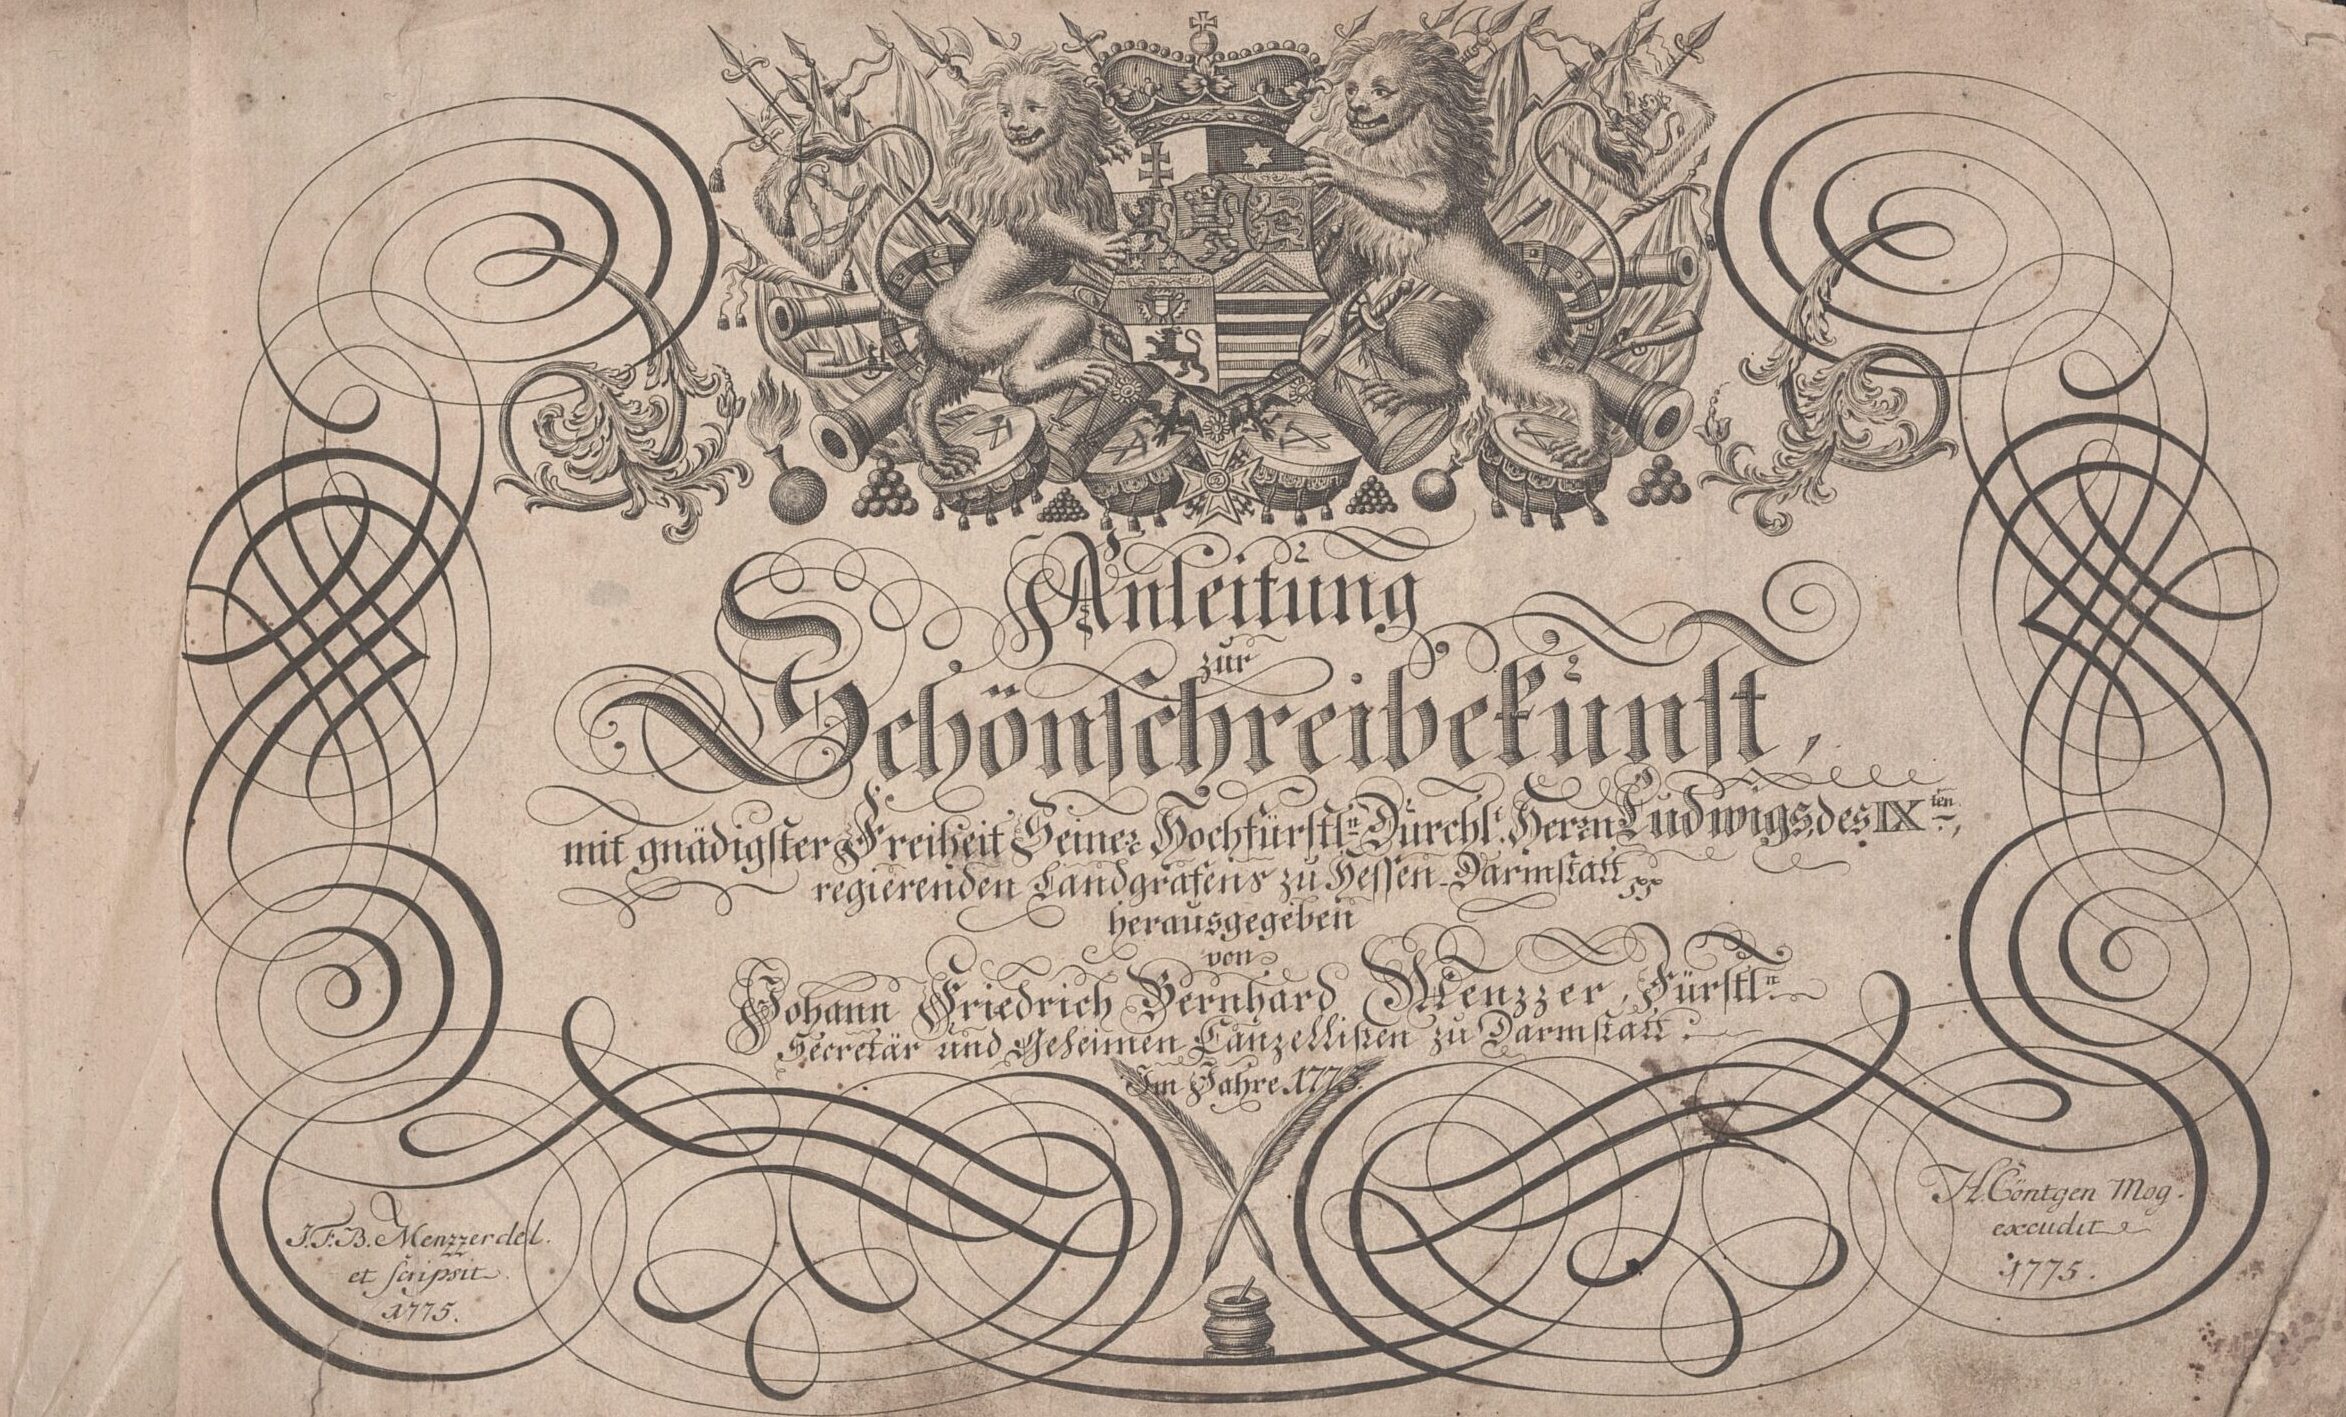 Anleitung
zur
Schönschreibekunst,
mit gnädigster Freiheit Seiner Hochfürstl.n Durchl.t Herrn Ludwigs, des IX.ten,
regierenden Landgrafens zu Hessen-Darmstatt
herausgegeben
von
Johann Friedrich Bernhard Menzzer, Fürstl.n
Secretär und Geheimen Canzellisten zu Darmstatt.
Im Jahre 1775.
J. F. B. Menzzer del.
et scripsit
1775.
H. Cöntgen Mog.
excudit
1775.